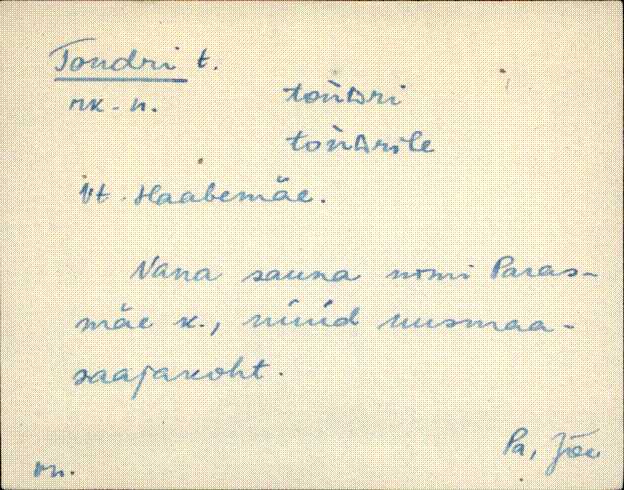 Tondri t.
mk-n. toǹᴅri
toǹᴅrile
Vt. Haabemäe.
Vana sauna nimi Paras-
mäe k., nüüd uusmaa-
saajakoht.
Pa, Jõe
vn.